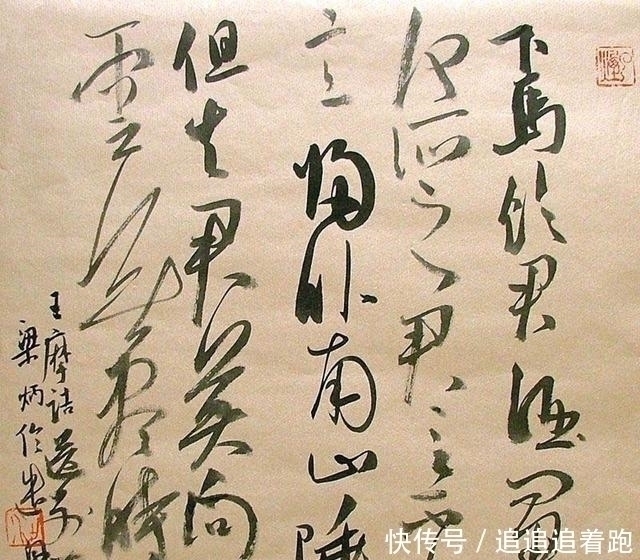 下馬飲君酒問
何所之君言不
意歸卧南山陲
但去君莫
雲無盡時
王摩詰送別
梁炳伦書
快传号 / 追追追着跑